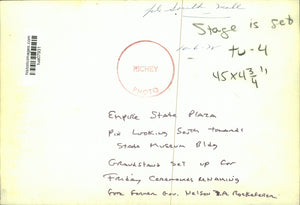 Stage is set
TU-4
45 x 4 3/4"
RICHEY
PHOTO
Empire State Plaza
Pix Looking South towards
State Museum Bldg
Grandstand set up for
Friday Ceremonies Renaming
for Former Gov. Nelson A. Rockefeller